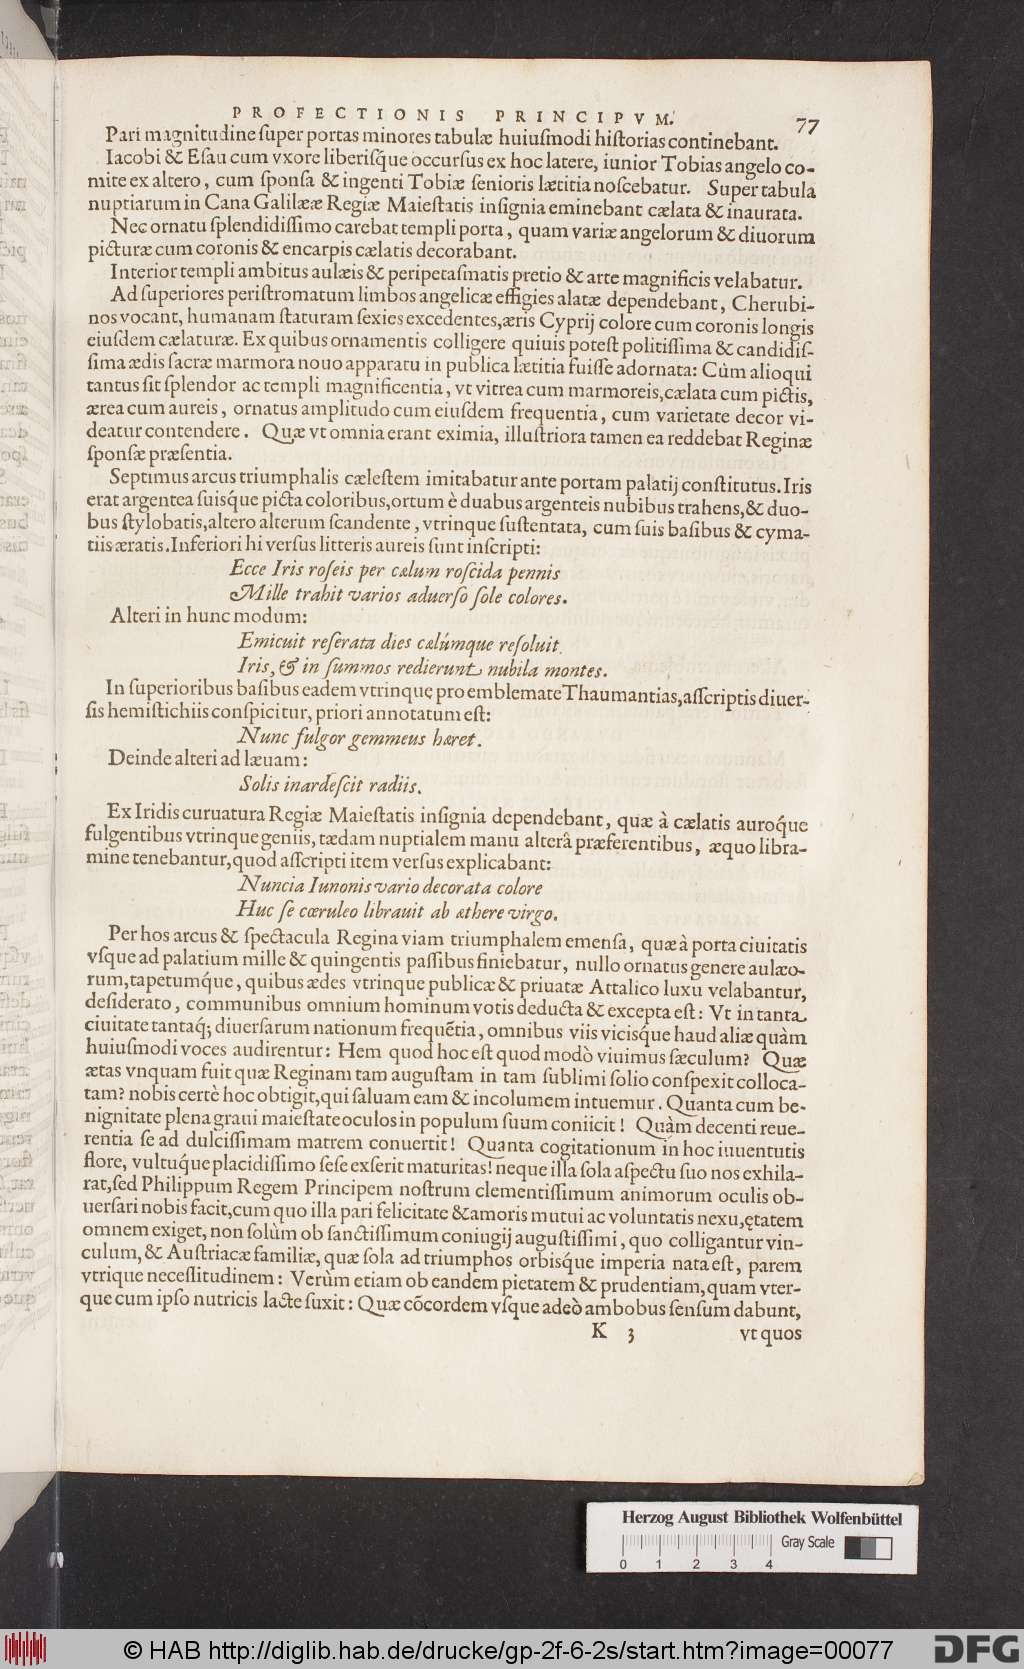 PROFECTIONIS PRINCIPVM. 77
Pari magnitudine ſuper portas minores tabulæ huiuſmodi hiſtorias continebant.
Iacobi & Eſau cum vxore liberiſq́ue occurſus ex hoc latere, iunior Tobias angelo co-
mite ex altero, cum ſponſa & ingenti Tobiæ ſenioris lætitia noſcebatur. Super tabula
nuptiarum in Cana Galilææ Regiæ Maieſtatis inſignia eminebant cælata & inaurata.
Nec ornatu ſplendidiſſimo carebat templi porta, quam variæ angelorum & diuorum
picturæ cum coronis & encarpis cælatis decorabant.
Interior templi ambitus aulæis & peripetaſmatis pretio & arte magnificis velabatur.
Ad ſuperiores periſtromatum limbos angelicæ effigies alatæ dependebant, Cherubi-
nos vocant, humanam ſtaturam ſexies excedentes, æris Cyprij colore cum coronis longis
eiuſdem cælaturæ. Ex quibus ornamentis colligere quiuis poteſt politiſſima & candidiſ-
ſima ædis ſacræ marmora nouo apparatu in publica lætitia fuiſſe adornata: Cùm alioqui
tantus ſit ſplendor ac templi magnificentia, vt vitrea cum marmoreis, cælata cum pictis,
ærea cum aureis, ornatus amplitudo cum eiuſdem frequentia, cum varietate decor vi-
deatur contendere. Quæ vt omnia erant eximia, illuſtriora tamen ea reddebat Reginæ
ſponſæ præſentia.
Septimus arcus triumphalis cæleſtem imitabatur ante portam palatij conſtitutus. Iris
erat argentea ſuiſq́ue picta coloribus, ortum è duabus argenteis nubibus trahens, & duo-
bus ſtylobatis, altero alterum ſcandente, vtrinque ſuſtentata, cum ſuis baſibus & cyma-
tiis æratis. Inferiori hi verſus litteris aureis ſunt inſcripti:
Ecce Iris roſeis per cælum roſcida pennis
Mille trahit varios aduerſo ſole colores.
Alteri in hunc modum:
Emicuit reſerata dies cælúmque reſoluit
Iris, & in ſummos redierunt nubila montes.
In ſuperioribus baſibus eadem vtrinquę pro emblemate Thaumantias, aſſcriptis diuer-
ſis hemiſtichiis conſpicitur, priori annotatum eſt:
Nunc fulgor gemmeus hæret.
Deinde alteri ad læuam:
Solis inardeſcit radiis.
Ex Iridis curuatura Regiæ Maieſtatis inſignia dependebant, quæ à cælatis auroq́ue
fulgentibus vtrinque geniis, tædam nuptialem manu alterâ præferentibus, æquo libra-
mine tenebantur, quod aſſcripti item verſus explicabant:
Nuncia Iunonis vario decorata colore
Huc ſe cœruleo librauit ab æthere virgo.
Per hos arcus & ſpectacula Regina viam triumphalem emenſa, quæ à porta ciuitatis
vſque ad palatium mille & quingentis paſſibus finiebatur, nullo ornatus genere aulæo-
rum, tapetumq́ue, quibus ædes vtrinque publicæ & priuatæ Attalico luxu velabantur,
deſiderato, communibus omnium hominum votis deducta & excepta eſt: Vt in tanta
ciuitate tantaq́; diuerſarum nationum frequẽtia, omnibus viis viciſq́ue haud aliæ quàm
huiuſmodi voces audirentur: Hem quod hoc eſt quod modò viuimus ſæculum? Quæ
ætas vnquam fuit quæ Reginam tam auguſtam in tam ſublimi ſolio conſpexit colloca-
tam? nobis certè hoc obtigit, qui ſaluam eam & incolumem intuemur. Quanta cum be-
nignitate plena graui maieſtate oculos in populum ſuum coniicit! Quàm decenti reue-
rentia ſe ad dulciſſimam matrem conuertit! Quanta cogitationum in hoc iuuentutis
flore, vultuq́ue placidiſſimo ſeſe exſerit maturitas! neque illa ſola aſpectu ſuo nos exhila-
rat, ſed Philippum Regem Principem noſtrum clementiſſimum animorum oculis ob-
uerſari nobis facit, cum quo illa pari felicitate & amoris mutui ac voluntatis nexu, ętatem
omnem exiget, non ſolùm ob ſanctiſſimum coniugij auguſtiſſimi, quo colligantur vin-
culum, & Auſtriacæ familiæ, quæ ſola ad triumphos orbiſq́ue imperia nata eſt, parem
vtrique neceſſitudinem: Verùm etiam ob eandem pietatem & prudentiam, quam vter-
que cum ipſo nutricis lacte ſuxit: Quæ cõcordem vſque adeò ambobus ſenſum dabunt,
K 3 vt quos
Herzog August Bibliothek Wolfenbüttel
Gray Scale
0 1 2 3 4
© HAB http://diglib.hab.de/drucke/gp-2f-6-2s/start.htm?image=00077
DFG